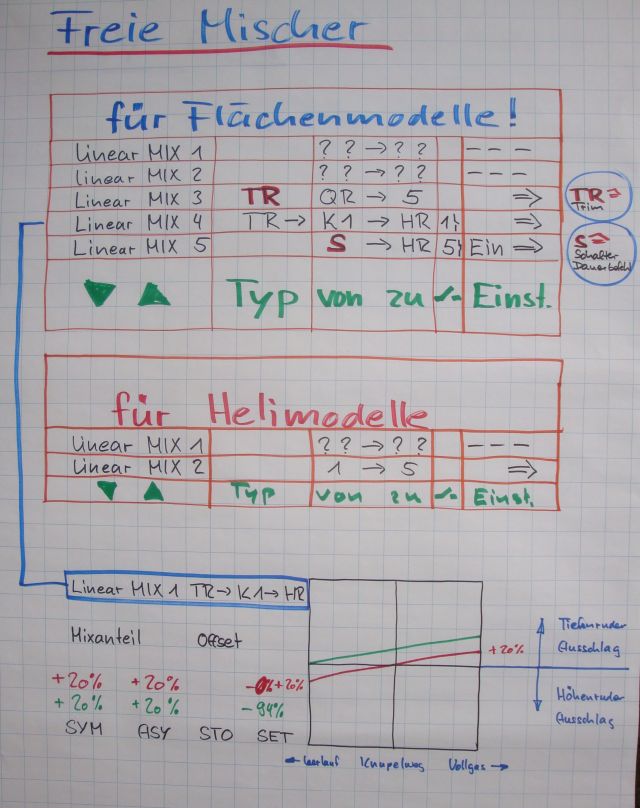 Freie Mischer
für Flächenmodelle!
Linear MIX 1 ? ? → ? ? – – –
Linear MIX 2 ? ? → ? ? – – –
Linear MIX 3 TR QR → 5 ⇒
Linear MIX 4 TR → K1 → HR 1 ⇒
Linear MIX 5 S → HR 5 Ein ⇒
▼ ▲ Typ von zu Einst.
TR ⇒
Trim
S ⇒
Schalter
Dauerbefehl
für Helimodelle
Linear MIX 1 ? ? → ? ? – – –
Linear MIX 2 1 → 5 ⇒
▼ ▲ Typ von zu Einst.
Linear MIX 1 TR → K1 → HR
Mixanteil Offset
+20% +20% +20%
+20% +20% -94%
SYM ASY STO SET
+20%
Tiefenruder
Ausschlag
Höhenruder
Ausschlag
← Leerlauf Knüpelweg Vollgas →